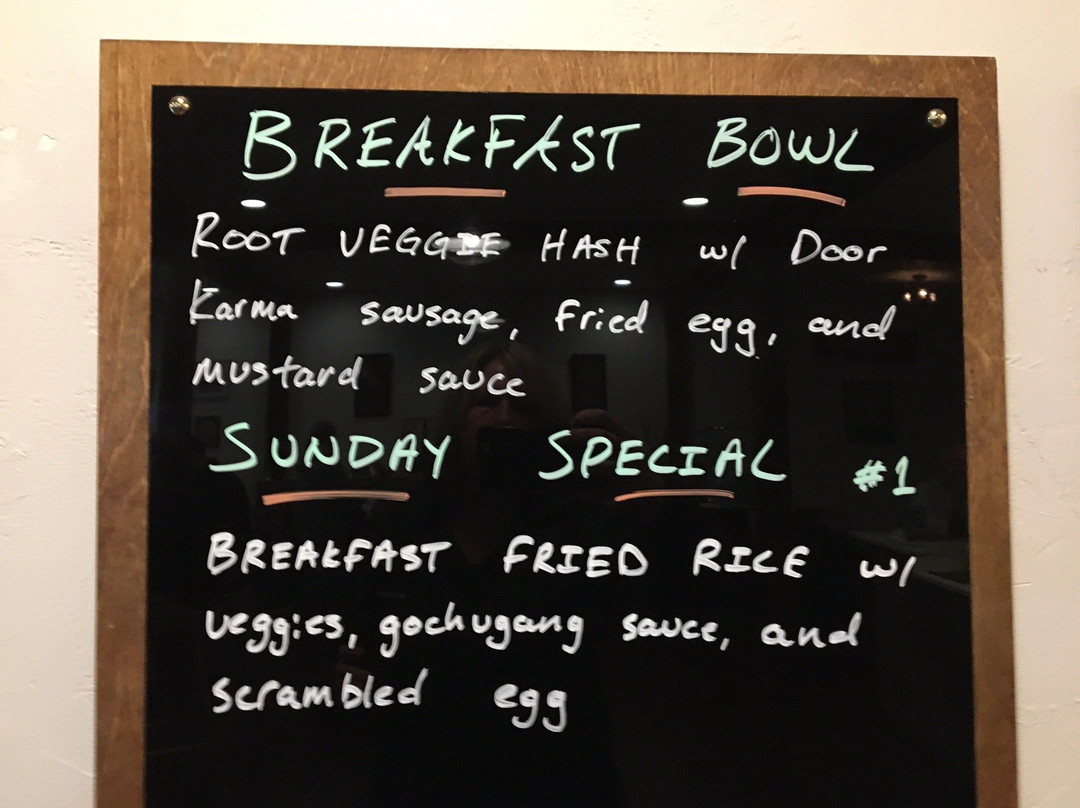 BREAKFAST BOWL
ROOT VEGGIE HASH w/ Door
Karma sausage, fried egg, and
mustard sauce
SUNDAY SPECIAL #1
BREAKFAST FRIED RICE w/
veggies, gochugang sauce, and
scrambled egg